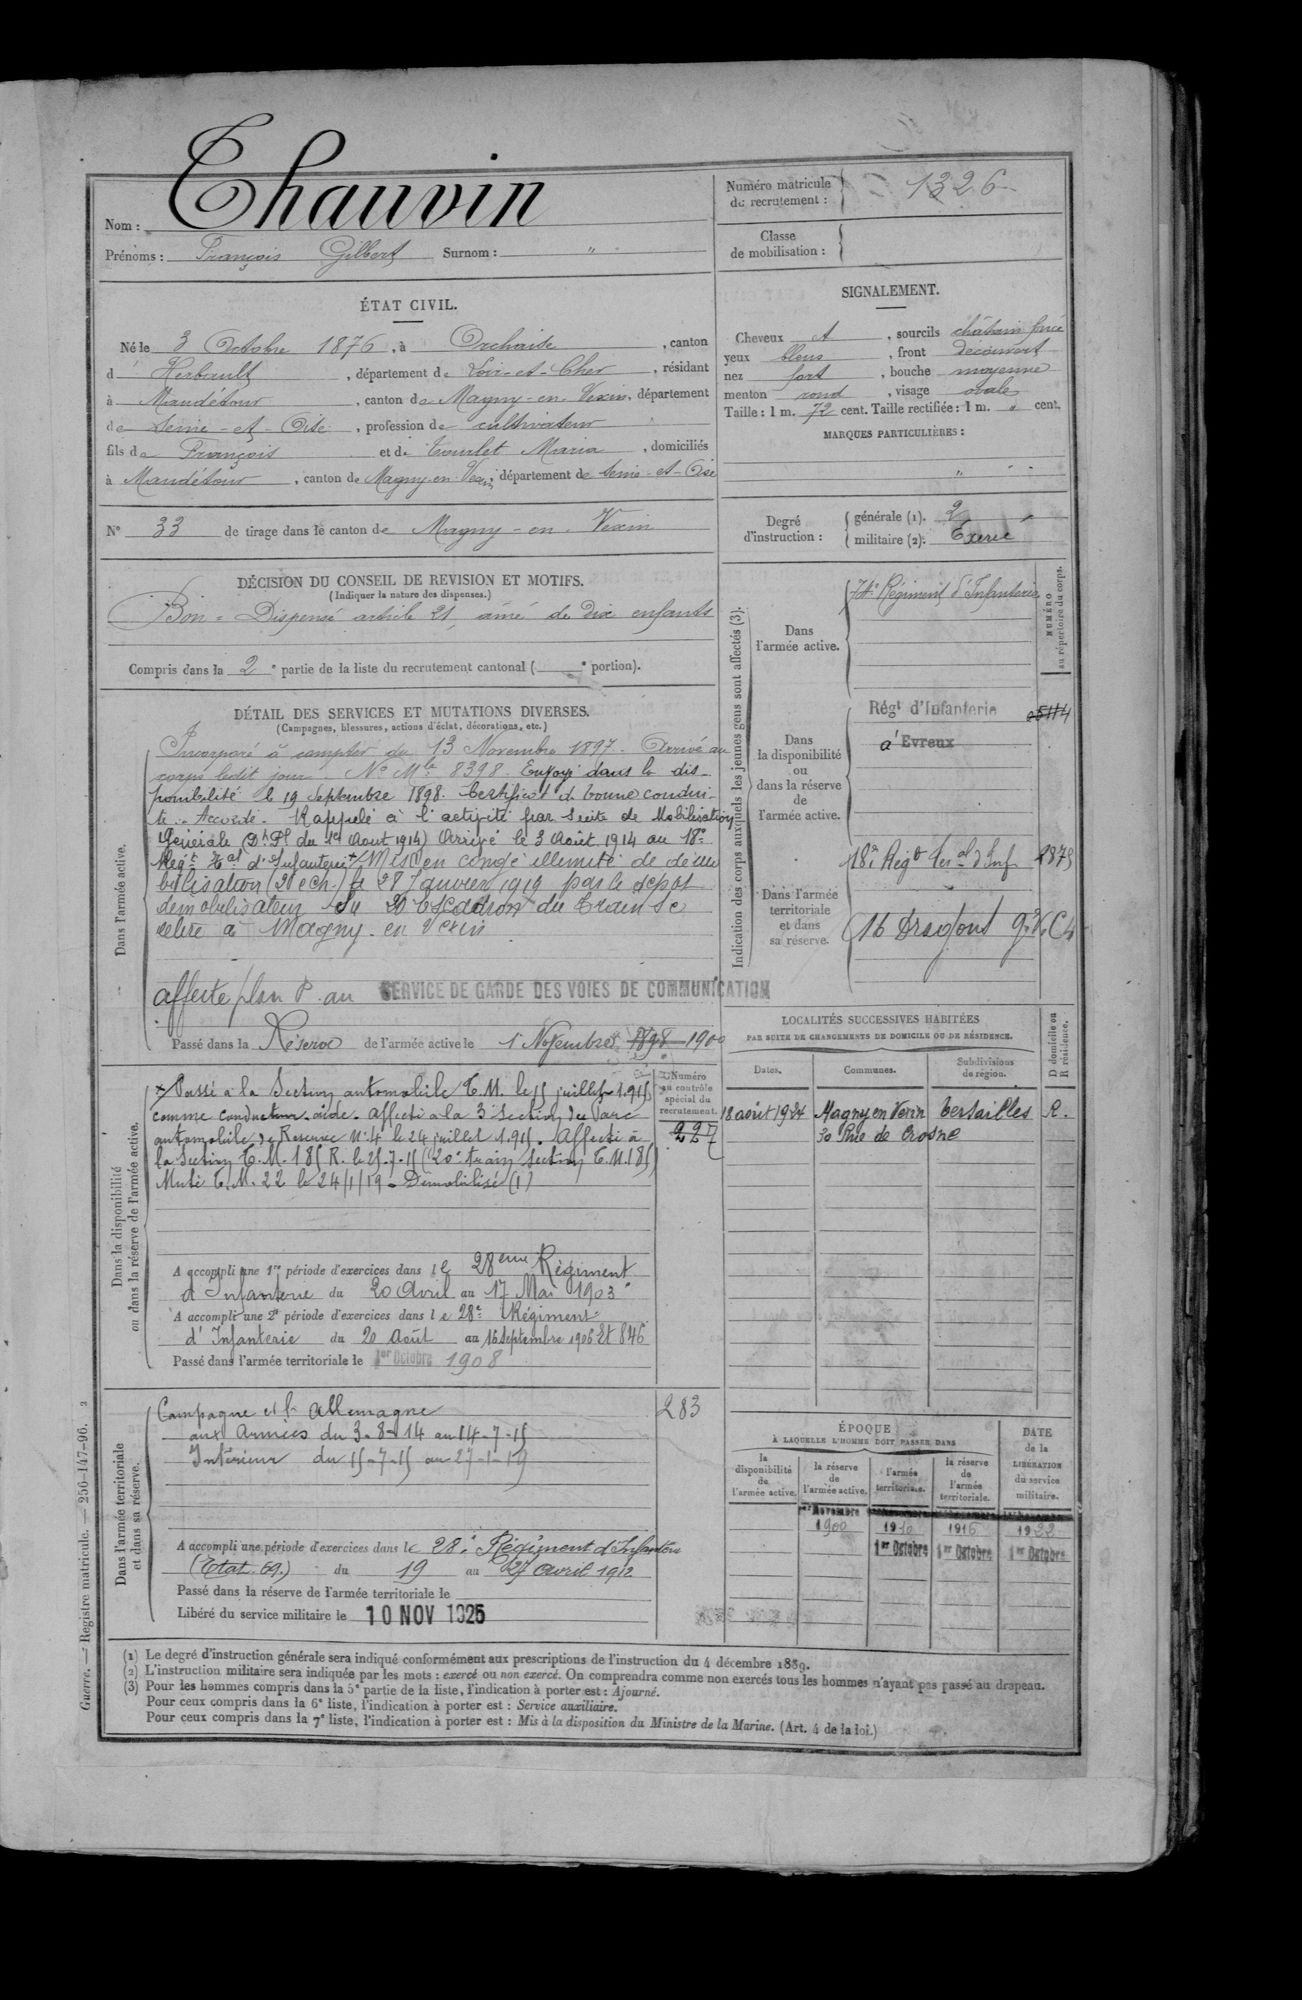 Nom : Chauvin
Prénoms : François Gilbert Surnom : "
Numéro matricule
de recrutement : 1326
Classe
de mobilisation :
ÉTAT CIVIL.
Né le 3 Octobre 1876, à Orchaise, canton
d Herbault, département de Loir-et-Cher, résidant
à Maudétour, canton de Magny-en-Vexin, département
de Seine-et-Oise, profession de cultivateur
fils de François et de Tourlet Maria, domiciliés
à Maudétour, canton de Magny-en-Vexin, département de Seine-et-Oise
N° 33 de tirage dans le canton de Magny-en-Vexin
SIGNALEMENT.
Cheveux et, sourcils châtain foncé
yeux bleus, front découvert
nez fort, bouche moyenne
menton rond, visage ovale
Taille : 1 m. 72 cent. Taille rectifiée : 1 m. " cent.
MARQUES PARTICULIÈRES :
"
Degré
d'instruction :
générale (1). 2
militaire (2). Exercé
DÉCISION DU CONSEIL DE REVISION ET MOTIFS.
(Indiquer la nature des dispenses.)
Bon = Dispensé article 21, aîné de dix enfants
Compris dans la 2e partie de la liste du recrutement cantonal ( e portion).
DÉTAIL DES SERVICES ET MUTATIONS DIVERSES.
(Campagnes, blessures, actions d'éclat, décorations, etc.)
Dans l'armée active.
Incorporé à compter du 13 Novembre 1897. Arrivé au
corps ledit jour. No Mle 8398. Envoyé dans la dis-
ponibilité le 19 Septembre 1898. Certificat de bonne condui-
te : Accordé. Rappelé à l'activité par suite de Mobilisation
Générale (Dt Pl du 1er Aout 1914) Arrivé le 3 Août 1914 au 18e
Regt Tal d'Infanterie + Mis en congé illimité de démo
bilisation (2e ech.) le 28 Janvier 1919 par le depot
demobilisateur du 20 Escadron du Train Se
retire à Magny-en Vexin
affecté plan P. au SERVICE DE GARDE DES VOIES DE COMMUNICATION
Passé dans la Réserve de l'armée active le 1er Novembre 1898 1900
Indication des corps auxquels les jeunes gens sont affectés (3).
NUMÉRO
au répertoire du corps.
Dans
l'armée active.
74e Régiment d'Infanterie
Dans
la disponibilité
ou
dans la réserve
de
l'armée active.
Régt d'Infanterie
à Evreux
Dans l'armée
territoriale
et dans
sa réserve.
18e Regt Teral d'Inf 2875
16 Dragons
LOCALITÉS SUCCESSIVES HABITÉES
PAR SUITE DE CHANGEMENTS DE DOMICILE OU DE RÉSIDENCE.
D domicile ou
R résidence.
Dates.
Communes.
Subdivisions
de région.
18 août 1924 Magny en Vexin Versailles R.
30 Rue de Crosne
Dans la disponibilité
ou dans la réserve de l'armée active.
Numéro
au contrôle
spécial du
recrutement.
227
+ Passé à la Section automobile T.M. le 15 juillet 1915
comme conducteur-aide. Affecté à la 3e Section du Parc
automobile de Reserve N°4 le 24 juillet 1915. Affecté à
la Section T.M. 185 R. le 25-7-15 (20e train Section T.M. 185)
Muté T.M. 22 le 24/1/19. Demobilisé (1)
A accompli une 1re période d'exercices dans le 28eme Régiment
d'Infanterie du 20 Avril au 17 Mai 1903
A accompli une 2e période d'exercices dans le 28e Régiment
d'Infanterie du 20 Août au 16 Septembre 1906 Et 846
Passé dans l'armée territoriale le 1er Octobre 1908
Dans l'armée territoriale
et dans sa réserve.
283
Campagne Allemagne
aux Armées du 3-8-14 au 14-7-15
Intérieur du 15-7-15 au 27-1-19
A accompli une période d'exercices dans le 28e Régiment d'Infanterie
(Etat 69.) du 19 au 27 Avril 1912
Passé dans la réserve de l'armée territoriale le
Libéré du service militaire le 10 NOV 1925
ÉPOQUE
À LAQUELLE L'HOMME DOIT PASSER DANS
la
disponibilité
de
l'armée active.
la réserve
de
l'armée active.
l'armée
territoriale.
la réserve
de
l'armée
territoriale.
DATE
de la
LIBÉRATION
du service
militaire.
1er Novembre
1900 1910 1916 1922
1er Octobre 1er Octobre 1er Octobre
(1) Le degré d'instruction générale sera indiqué conformément aux prescriptions de l'instruction du 4 décembre 1889.
(2) L'instruction militaire sera indiquée par les mots : exercé ou non exercé. On comprendra comme non exercés tous les hommes n'ayant pas passé au drapeau.
(3) Pour les hommes compris dans la 5e partie de la liste, l'indication à porter est : Ajourné.
Pour ceux compris dans la 6e liste, l'indication à porter est : Service auxiliaire.
Pour ceux compris dans la 7e liste, l'indication à porter est : Mis à la disposition du Ministre de la Marine. (Art. 4 de la loi.)
Guerre. — Registre matricule. — 256-147-96. 2